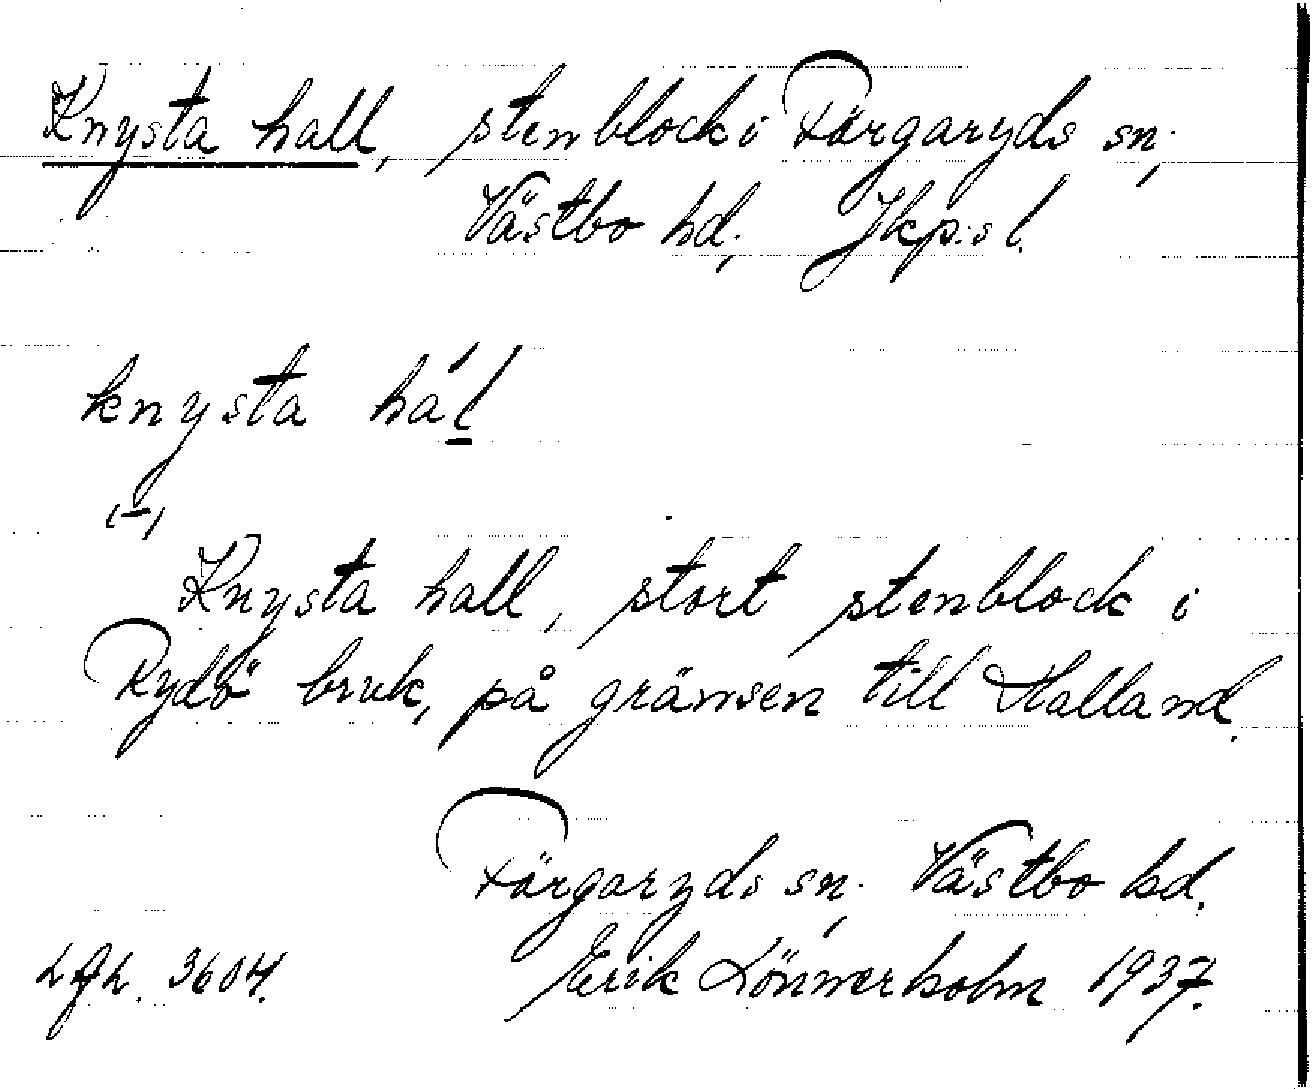 Knysta hall, stenblock i Färgaryds sn;
Västbo hd; Jkp:s l.
knysta hál
(-)
Knysta hall, stort stenblock i
Rydö bruk, på gränsen till Halland.
Färgaryds sn; Västbo hd.
Lgh. 3604. Erik Lönnerholm 1937.